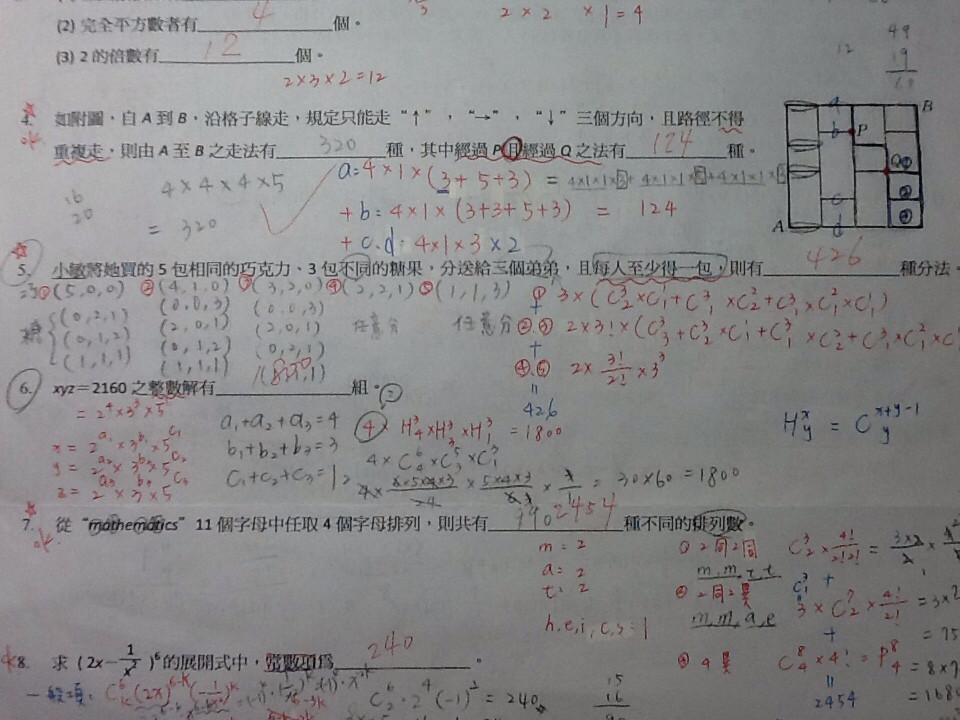 (2) 完全平方數者有 4 個。 2×2 ×1=4
(3) 2 的倍數有 12 個。
2×3×2=12
12
49
19
4. 如附圖，自 A 到 B，沿格子線走，規定只能走 “↑”，“→”，“↓”三個方向，且路徑不得
ok
重複走，則由 A 至 B 之走法有 320 種，其中經過 P 且經過 Q 之法有 124 種。
A B P Q a b c d
16
20
4×4×4×5
= 320
a: 4×1×(3+5+3) =
+b: 4×1×(3+3+5+3) = 124
+c.d: 4×1×3×2
5. 小敏將她買的 5 包相同的巧克力、3 包不同的糖果，分送給三個弟弟，且每人至少得一包，則有 426 種分法。
①(5,0,0) ②(4,1,0) ③(3,2,0) ④(2,2,1) ⑤(1,1,3)
糖
(0,2,1)
(0,1,2)
(1,1,1)
(0,0,3)
(2,0,1)
(0,1,2)
(1,1,1)
(0,0,3)
(2,0,1)
(0,2,1)
任意分 任意分
① 3×(C³₂×C¹₁+C³₁×C²₂+C³₁×C²₁×C¹₁)
+
②.③ 2×3!×(C³₃+C³₂×C¹₁+C³₁×C²₂+C³₁×C²₁×C
+
④.⑤ 2×3!/2!×3³
=
426
6. xyz＝2160 之整數解有 1800 組。
= 2⁴×3³×5
x = 2^a₁×3^b₁×5^c₁
y = 2^a₂×3^b₂×5^c₂
z = 2^a₃×3^b₃×5^c₃
a₁+a₂+a₃=4
b₁+b₂+b₃=3
c₁+c₂+c₃=1
4×H³₄×H³₃×H³₁ =1800
4×C⁶₄×C⁵₃×C³₁
= 30×60 = 1800
H^x_y = C^{x+y-1}_y
7. 從 “mathematics” 11 個字母中任取 4 個字母排列，則共有 2454 種不同的排列數。
ok
m = 2
a = 2
t = 2
h.e,i,c,s=1
① 2同2同 C³₂×4!/2!2! =
m,m,t,t
+
② 2同2異 C³₁×C⁷₂×4!/2! =
m,m,a,e
+
③ 4異 C⁸₄×4! = P⁸₄
=
2454
8. 求 (2x－1/x²)⁶ 的展開式中，常數項為 240 。
ok
一般項: C⁶ₖ(2x)^{6-k}(-1/x²)^k
C⁶₂·2⁴(-1)² = 240
15
16